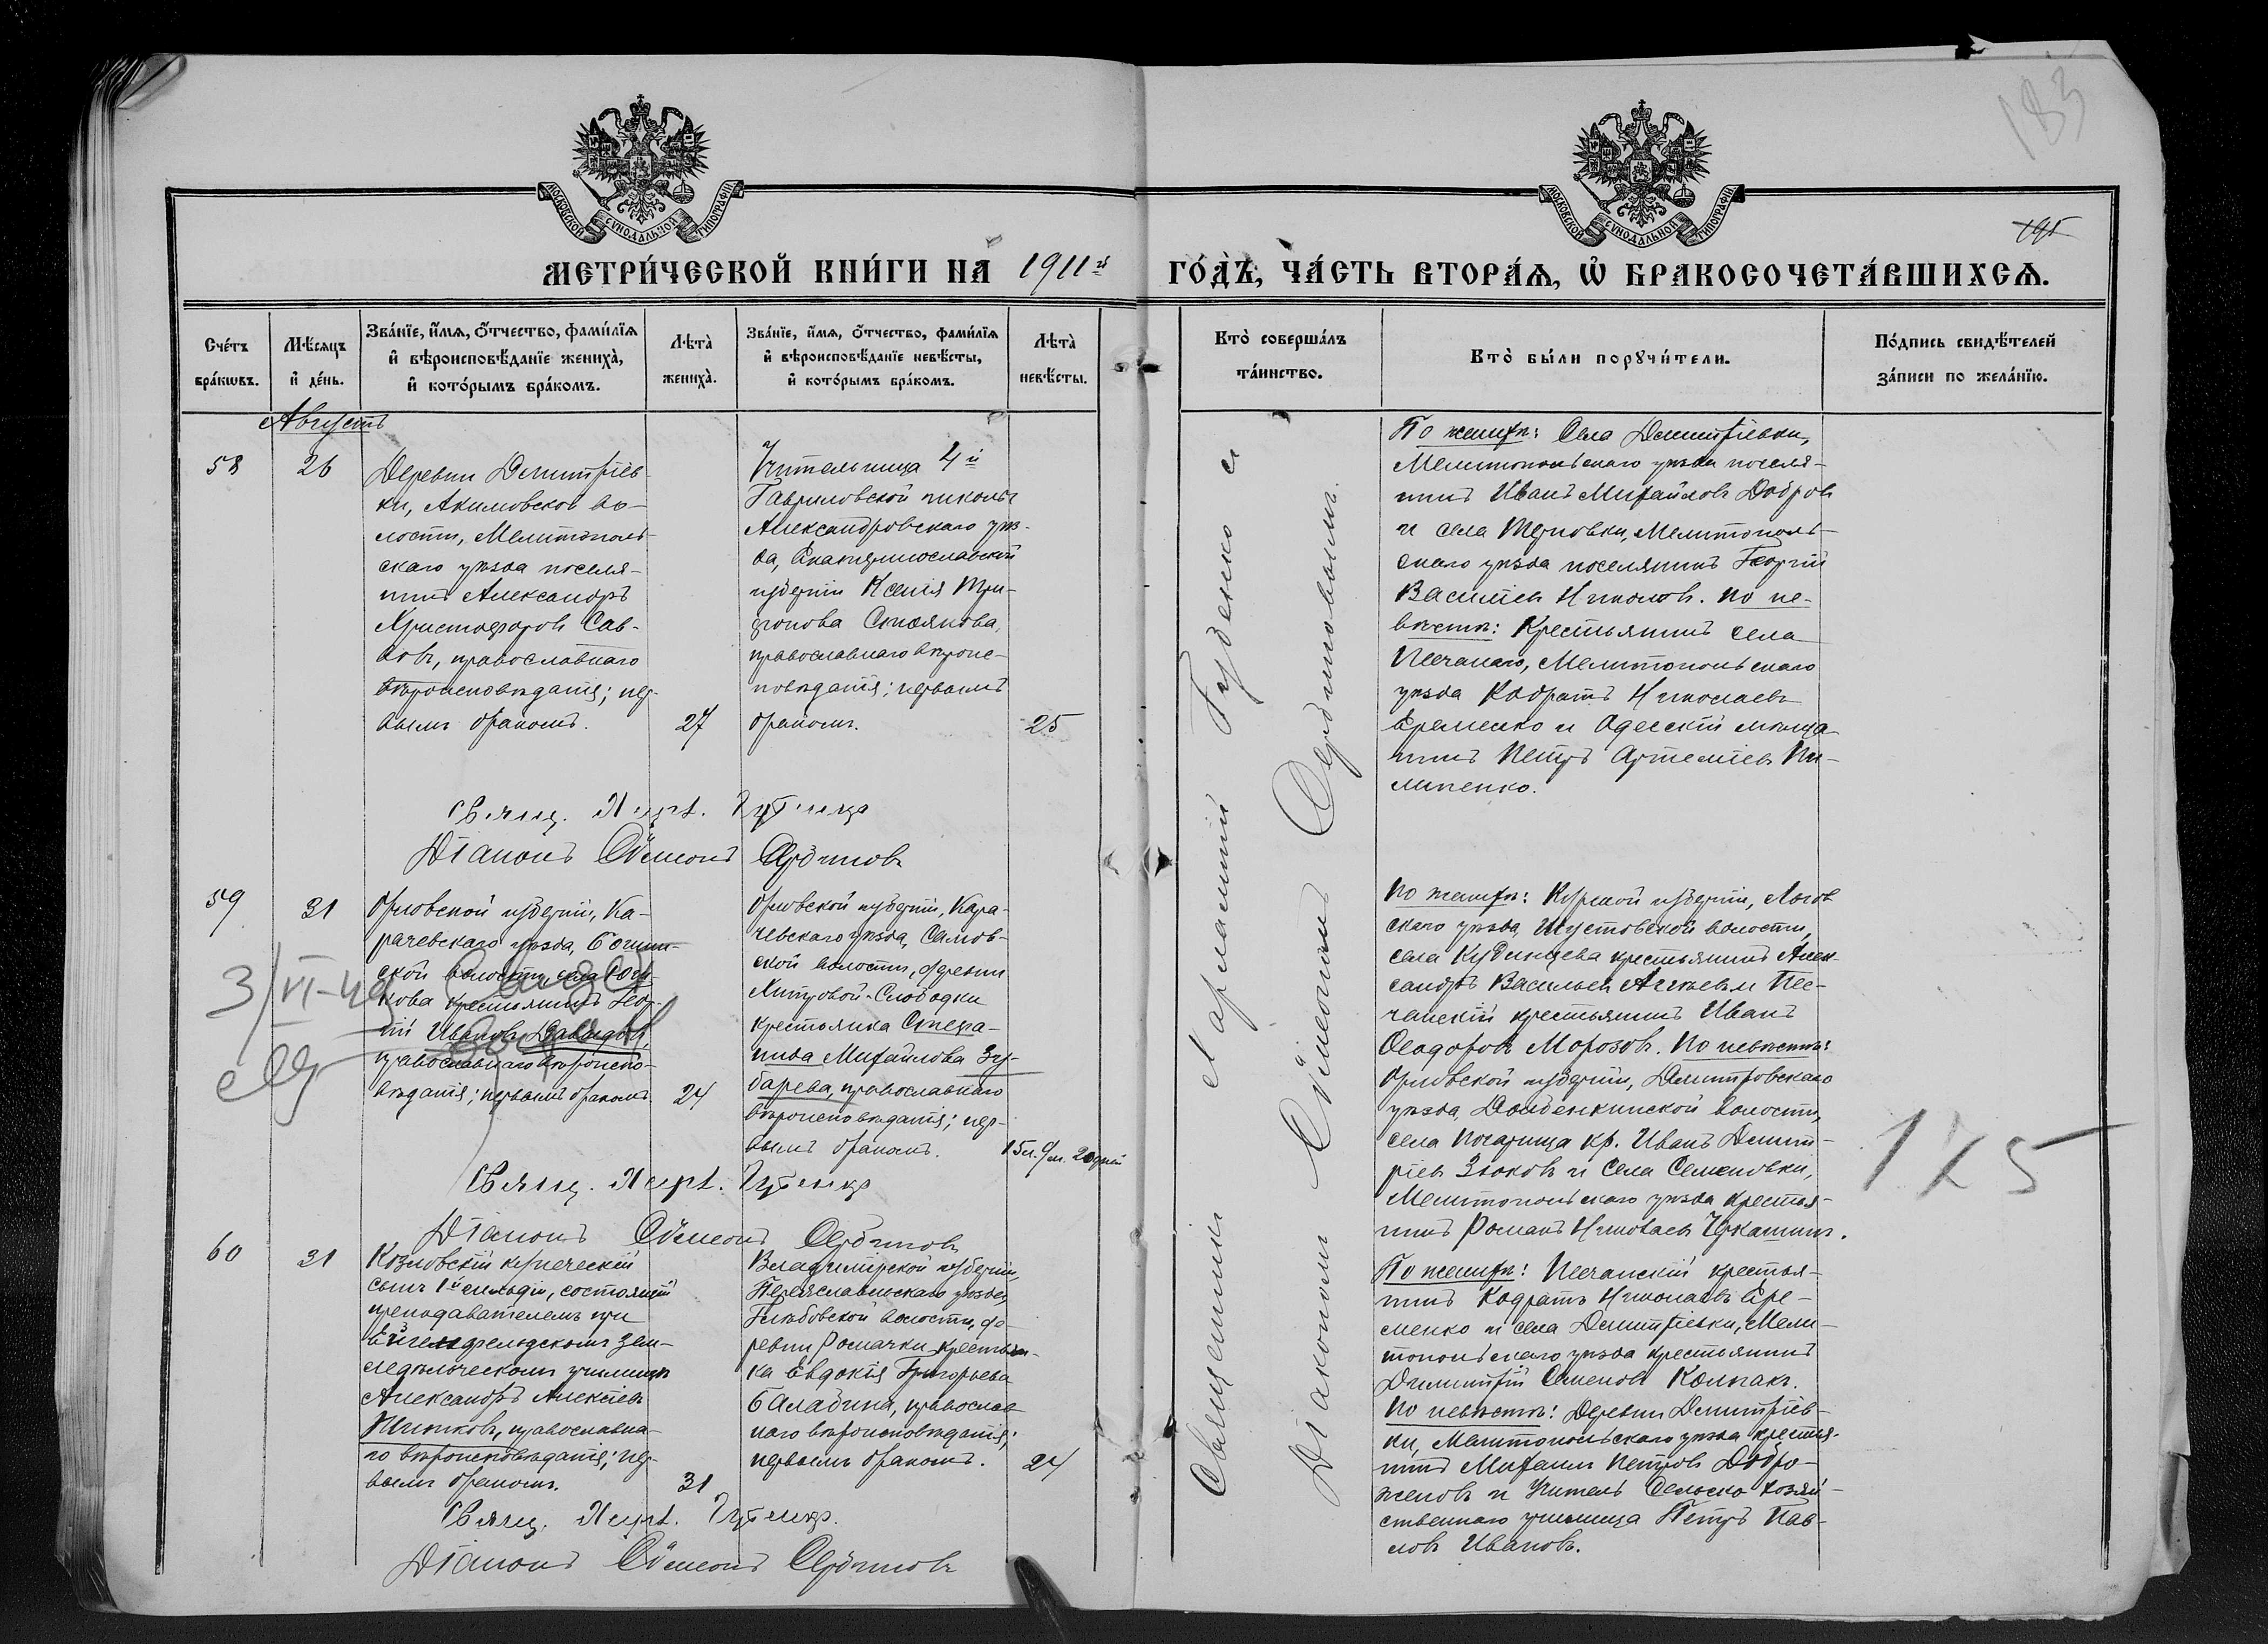 183
195
МОСКОВСКОЙ СѴНОДАЛЬНОЙ ТИПОГРАФІИ
МОСКОВСКОЙ СѴНОДАЛЬНОЙ ТИПОГРАФІИ
МЕТРИ́ЧЕСКОЙ КНИ́ГИ НА 1911й ГО́ДЪ, ЧА́СТЬ ВТОРА́Ѧ, Ѿ БРАКОСОЧЕТА́ВШИХСѦ.
Сче́тъ
бра́кѡвъ.
Мѣ́сяцъ
и҆ де́нь.
Зва́нїе, и҆́мѧ, ѻ҆́тчество, фами́лїѧ
и҆ вѣроисповѣ́данїе жениха̀,
и҆ кото́рымъ бра́комъ.
Лѣта̀
жениха̀.
Зва́нїе, и҆́мѧ, ѻ҆́тчество, фами́лїѧ
и҆ вѣроисповѣ́данїе невѣ́сты,
и҆ кото́рымъ бра́комъ.
Лѣта̀
невѣ́сты.
Кто̀ соверша́лъ
та́инство.
Кто̀ бы́ли порꙋчи́тели.
По́дпись свидѣ́телей
за́писи по жела́нїю.
Августъ
58
26
Деревни Димитріев-
ки, Акимовской во-
лости, Мелитополь-
скаго уѣзда поселя-
нинъ Александръ
Христофоровъ Сав-
ковъ, православнаго
вѣроисповѣданія; пер-
вымъ бракомъ.
27
Учительница 4й
Гавриловской школы
Александровскаго уѣз-
да, Екатеринославской
губерніи Ксенія Три-
фонова Стоянова,
православнаго вѣроис-
повѣданія; первымъ
бракомъ.
25
По женихѣ: Села Димитріевки,
Мелитопольскаго уѣзда поселя-
нинъ Иванъ Михайловъ Добровъ
и села Терновки, Мелитополь-
скаго уѣзда поселянинъ Георгій
Васильевъ Николовъ. По не-
вѣстѣ: Крестьянинъ села
Песчанаго, Мелитопольскаго
уѣзда Кодратъ Николаевъ
Еременко и Одесскій мѣща-
нинъ Петръ Артеміевъ Пи-
липенко.
Свящ. Харл. Гуденко
Діаконъ Сѵмеонъ Сербиновъ
59
31
Орловской губерніи, Ка-
рачевскаго уѣзда,
ской волости, села
кова крестьянинъ Геор-
гій Ивановъ Давыдовъ,
православнаго вѣроиспо-
вѣданія; первымъ бракомъ.
24
3/VI-49
Орловской губерніи, Кара-
чевскаго уѣзда, Самов-
ской волости, деревни
Хитровой-Слободки
крестьянка Стефа-
нида Михайлова Зу-
барева, православнаго
вѣроисповѣданія; пер-
вымъ бракомъ.
15 л. 9 м. 20 дней
По женихѣ: Курской губерніи, Льгов-
скаго уѣзда, Шустовской волости,
села Кудинцева крестьянинъ Алек-
сандръ Васильевъ и Пес-
чанскій крестьянинъ Иванъ
Ѳеодоровъ Морозовъ. По невѣстѣ:
Орловской губерніи, Димитровскаго
уѣзда, Долбенкинской волости,
села Погарища кр. Иванъ Димит-
ріевъ Зюковъ и Села Семеновки,
Мелитопольскаго уѣзда крестья-
нинъ Романъ Николаевъ Чукаминъ.
175
Свящ. Харл. Гуденко
Діаконъ Сѵмеонъ Сербиновъ
60
31
Козловскій купеческій
сынъ 1й гильдіи, состоящій
преподавателемъ при
Ейгенфельдскомъ зем-
ледѣльческомъ училищѣ
Александръ Алексѣевъ
православна-
го вѣроисповѣданія; пер-
вымъ бракомъ.
31
Владимірской губерніи,
Переславльскаго уѣзда,
Глѣбовской волости, де-
ревни Ромачки крестьян-
ка Евдокія Григорьева
Баладина, православ-
наго вѣроисповѣданія;
первымъ бракомъ.
24
По женихѣ: Песчанскій крестья-
нинъ Кодратъ Николаевъ Ере-
менко и села Димитріевки, Мели-
топольскаго уѣзда крестьянинъ
Димитрій Семеновъ Колпакъ.
По невѣстѣ: Деревни Димитріев-
ки, Мелитопольскаго уѣзда крестья-
нинъ Михаилъ Петровъ Добро-
женовъ и Учитель Сельско хозяй-
ственнаго училища Петръ Пав-
ловъ Ивановъ.
Свящ. Харл. Гуденко.
Діаконъ Сѵмеонъ Сербиновъ
Священникъ Харлампій Гуденко съ
Діакономъ Сѵмеономъ Сербиновымъ.